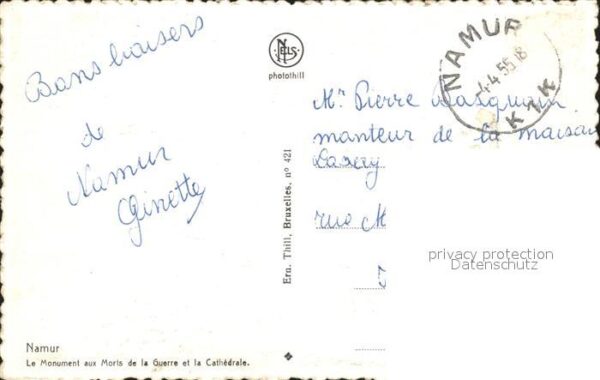 Bons baisers
de
Namur
Ginette
NELS
photothill
Ern. Thill, Bruxelles, nº 421
NAMUR
-4.4.55.18
Mr Pierre
monteur de la maison
rue M
privacy protection
Datenschutz
Namur
Le Monument aux Morts de la Guerre et la Cathédrale.